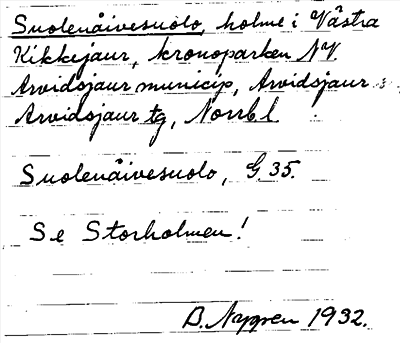 Suolenåivesuolo, holme i Västra
Kikkejaur, kronoparken NV.
Arvidsjaur municip, Arvidsjaur s
Arvidsjaur tg, Norrb l
Suolenåivesuolo, G. 35.
Se Storholmen!
B. Nygren 1932.